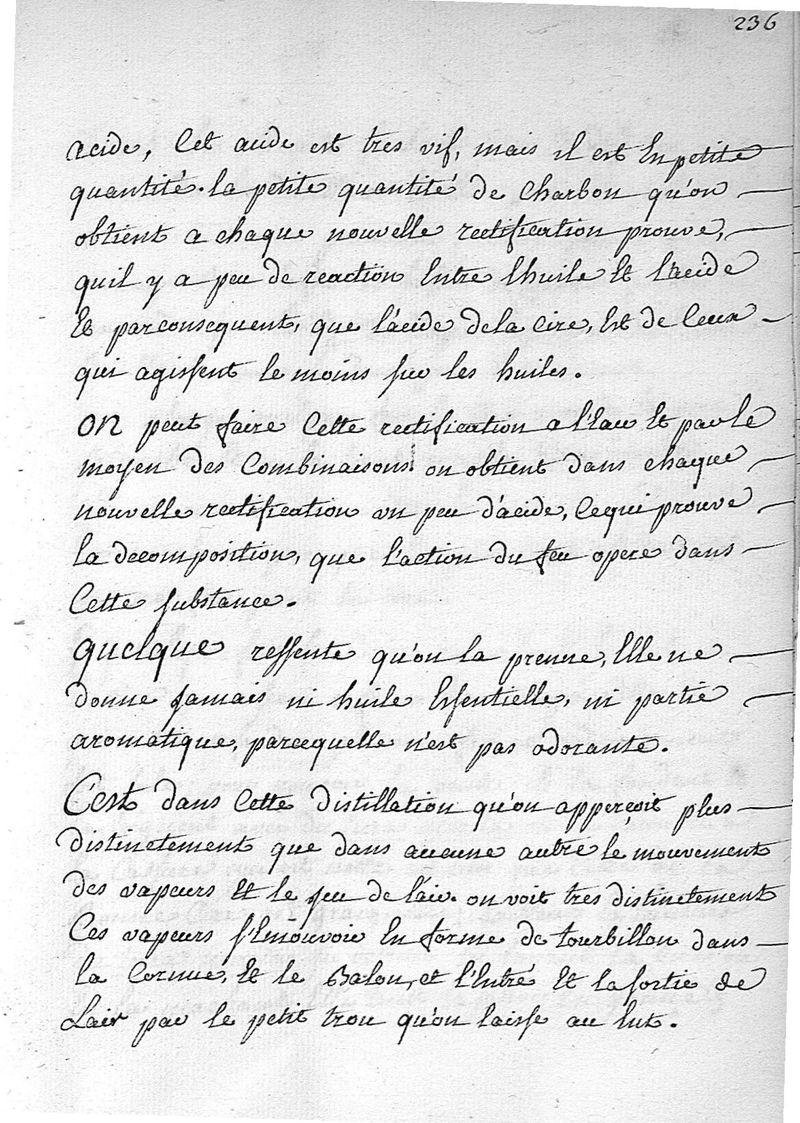 236
acide, Cet acide est tres vif, mais il est En petite
quantité. la petite quantité de Charbon qu'on
obtient a chaque nouvelle rectification prouve,
quil y a peu de reaction Entre l'huile Et l'acide
Et parconsequent, que l'acide dela Cire, Est de Ceux
qui agissent le moins sur les huiles.
on peut faire Cette rectification a l'Eau Et par le
moyen des Combinaisons on obtient dans chaque
nouvelle rectification un peu d'acide, Cequi prouve
la decomposition, que l'action du feu opere dans
Cette substance.
quelque ressente qu'on la prenne, Elle ne
donne jamais ni huile Essentielle, ni partie
aromatique, parcequelle n'est pas odorante.
C'est dans Cette distillation qu'on apperçoit plus
distinctement que dans aucune autre le mouvement
des vapeurs Et le jeu de l'air. on voit tres distinctement
Ces vapeurs s'Emouvoir En forme de tourbillon dans
la Cornue, Et le Balon, et l'Entré Et la sortie de
Lair par le petit trou qu'on laisse au lut.